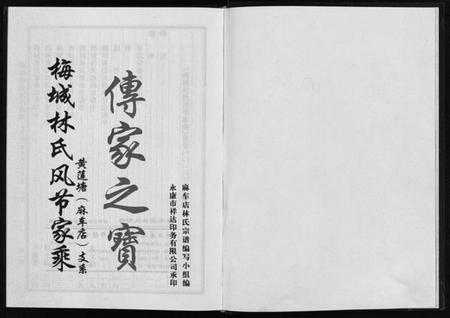 麻车店林氏宗谱编写小组编
永康市祥达印务有限公司承印
傳家之寶
黄莲塘（麻车店）支系
梅城林氏风节家乘